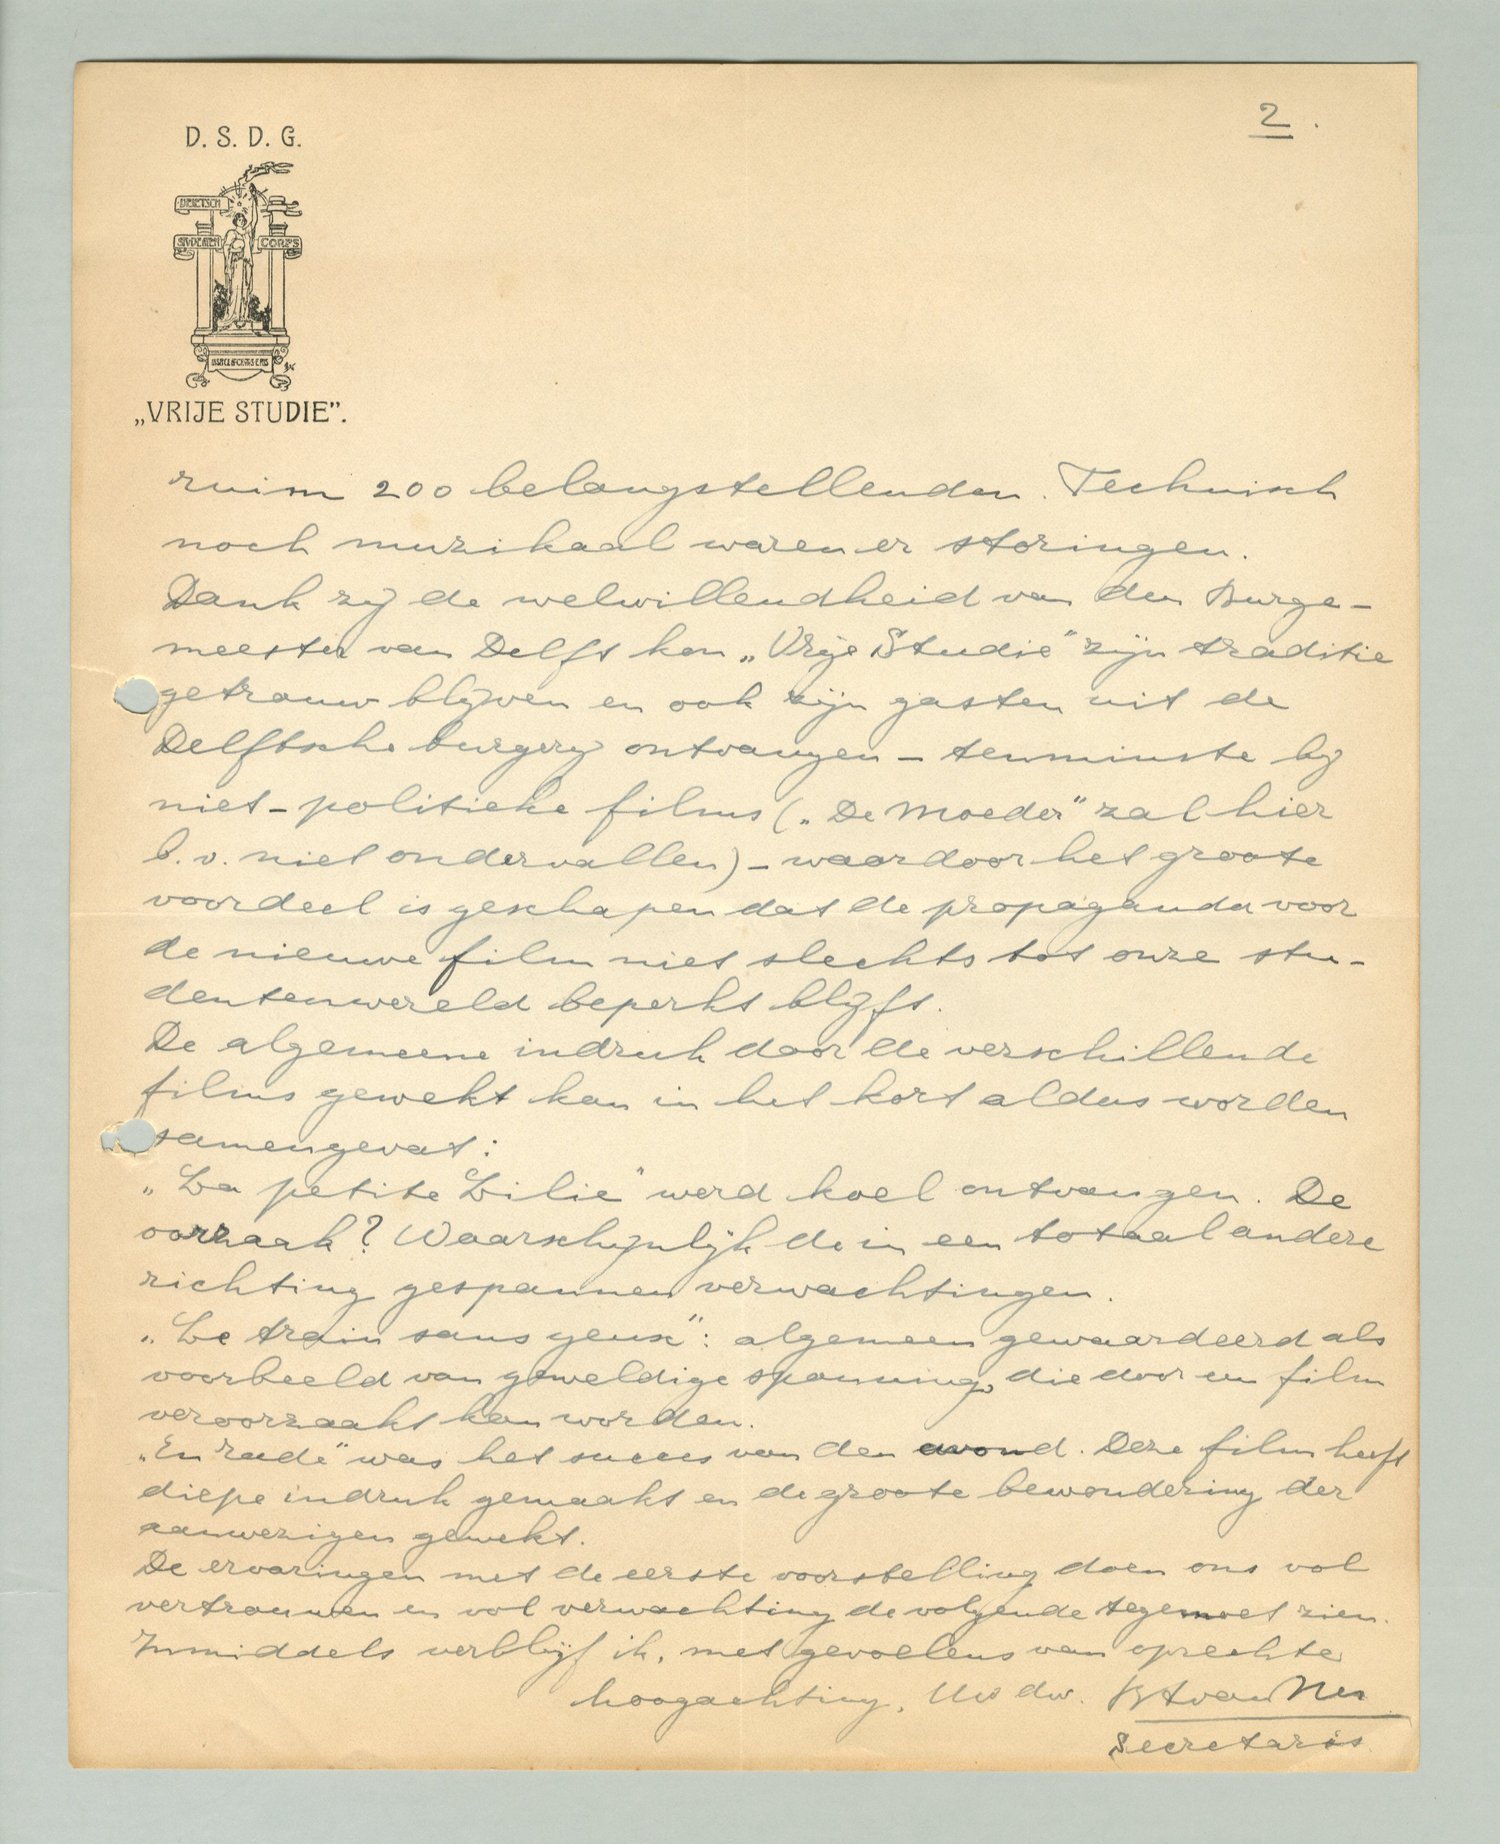 2.
D. S. D. G.
DELFTSCH
STUDENTEN CORPS
„VRIJE STUDIE".
ruim 200 belangstellenden. Technisch
noch muzikaal waren er storingen.
Dank zij de welwillendheid van den Burge-
meester van Delft kon „Vrije Studie" zijn traditie
getrouw blijven en ook zijn gasten uit de
Delftsche burgerij ontvangen – tenminste bij
niet-politieke films („De Moeder" zal hier
b.v. niet onder vallen) – waardoor het groote
voordeel is geschapen dat de propaganda voor
de nieuwe film niet slechts tot onze stu-
dentenwereld beperkt blijft.
De algemeene indruk door de verschillende
films gewekt kan in het kort aldus worden
samengevat:
„La petite Lilie" werd koel ontvangen. De
oorzaak? Waarschijnlijk de in een totaal andere
richting gespannen verwachtingen.
„Le train sans yeux": algemeen gewaardeerd als
voorbeeld van geweldige spanning, die door een film
veroorzaakt kan worden.
„En rade" was het succes van den avond. Deze film heeft
diepe indruk gemaakt en de groote bewondering der
aanwezigen gewekt.
De ervaringen met de eerste voorstelling doen ons vol
vertrouwen en vol verwachting de volgende tegemoet zien.
Inmiddels verblijf ik, met gevoelens van oprechte
hoogachting, Uw dw.
Secretaris